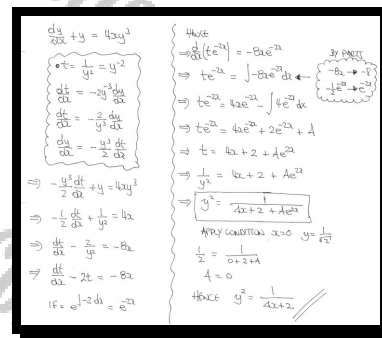 dy/dx + y = 4xy³
• t = 1/y² = y⁻²
dt/dx = -2y⁻³ dy/dx
dt/dx = -2/y³ dy/dx
dy/dx = -y³/2 dt/dx
⇒ -y³/2 dt/dx + y = 4xy³
⇒ -1/2 dt/dx + 1/y² = 4x
⇒ dt/dx - 2/y² = -8x
⇒ dt/dx - 2t = -8x
IF = e^∫-2 dx = e^-2x
HENCE
⇒ d/dx (te^-2x) = -8xe^-2x
⇒ te^-2x = ∫ -8xe^-2x dx
BY PARTS
-8x → -8
-1/2 e^-2x ← e^-2x
⇒ te^-2x = 4xe^-2x - ∫ 4e^-2x dx
⇒ te^-2x = 4xe^-2x + 2e^-2x + A
⇒ t = 4x + 2 + Ae^2x
⇒ 1/y² = 4x + 2 + Ae^2x
⇒ y² = 1/(4x + 2 + Ae^2x)
APPLY CONDITION x=0 y = 1/√2
1/2 = 1/(0+2+A)
A = 0
HENCE y² = 1/(4x+2)